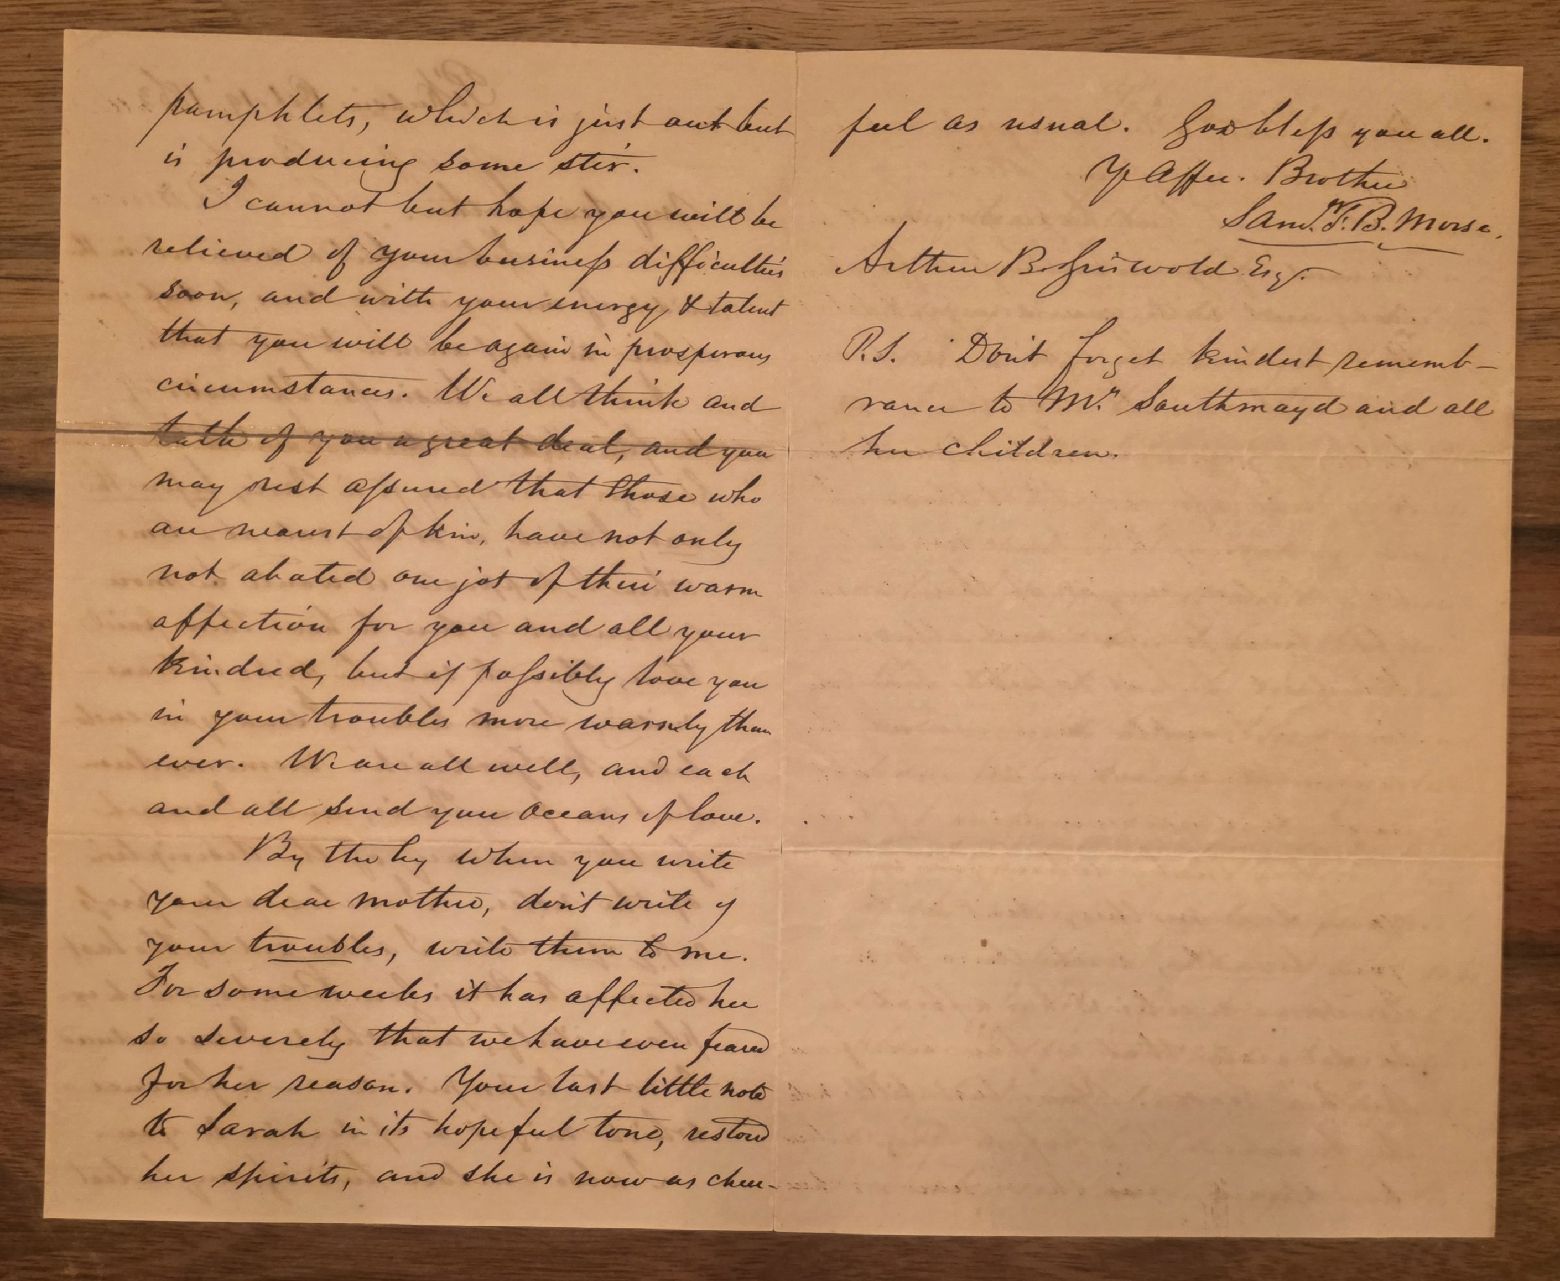 pamphlets, which is just out but
is producing some stir.
I cannot but hope you will be
relieved of your business difficulties
soon, and with your energy & talent
that you will be again in prosperous
circumstances. We all think and
talk of you a great deal, and you
may rest assured that those who
are nearest of kin, have not only
not abated one jot of their warm
affection for you and all your
kindred, but if possibly love you
in your troubles more warmly than
ever. We are all well, and each
and all send you oceans of love.
By the by when you write
your dear mother, don't write of
your troubles, write them to me.
For some weeks it has affected her
so severely that we have even feared
for her reason. Your last little note
to Sarah in its hopeful tone, restored
her spirits, and she is now as cheer-
ful as usual. God bless you all.
Yr Affec. Brother
Saml. F. B. Morse.
Arthur B. Griswold Esqr.
P.S. Don't forget kindest rememb-
rance to Mrs Southmayd and all
her children.